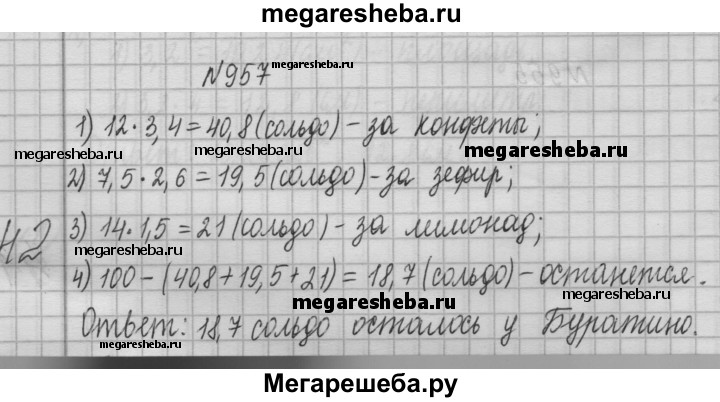 megaresheba.ru
N957 megaresheba.ru
1) 12·3,4=40,8(сольдо)-за конфеты;
megaresheba.ru megaresheba.ru megaresheba.ru
2) 7,5·2,6=19,5(сольдо)-за зефир;
42 3) 14·1,5=21(сольдо)-за лимонад;
megaresheba.ru
4) 100-(40,8+19,5+21)=18,7(сольдо)-останется.
megaresheba.ru megaresheba.ru
Ответ: 18,7 сольдо осталось у Буратино.
megaresheba.ru
Мегарешеба.ру